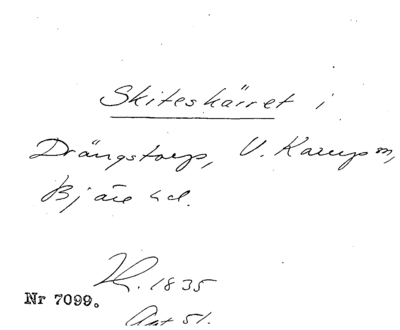 Skiteskärret i
Drängstorp, V. Karup sn,
Bjäre hd.
1835
Nr 7099.
51.